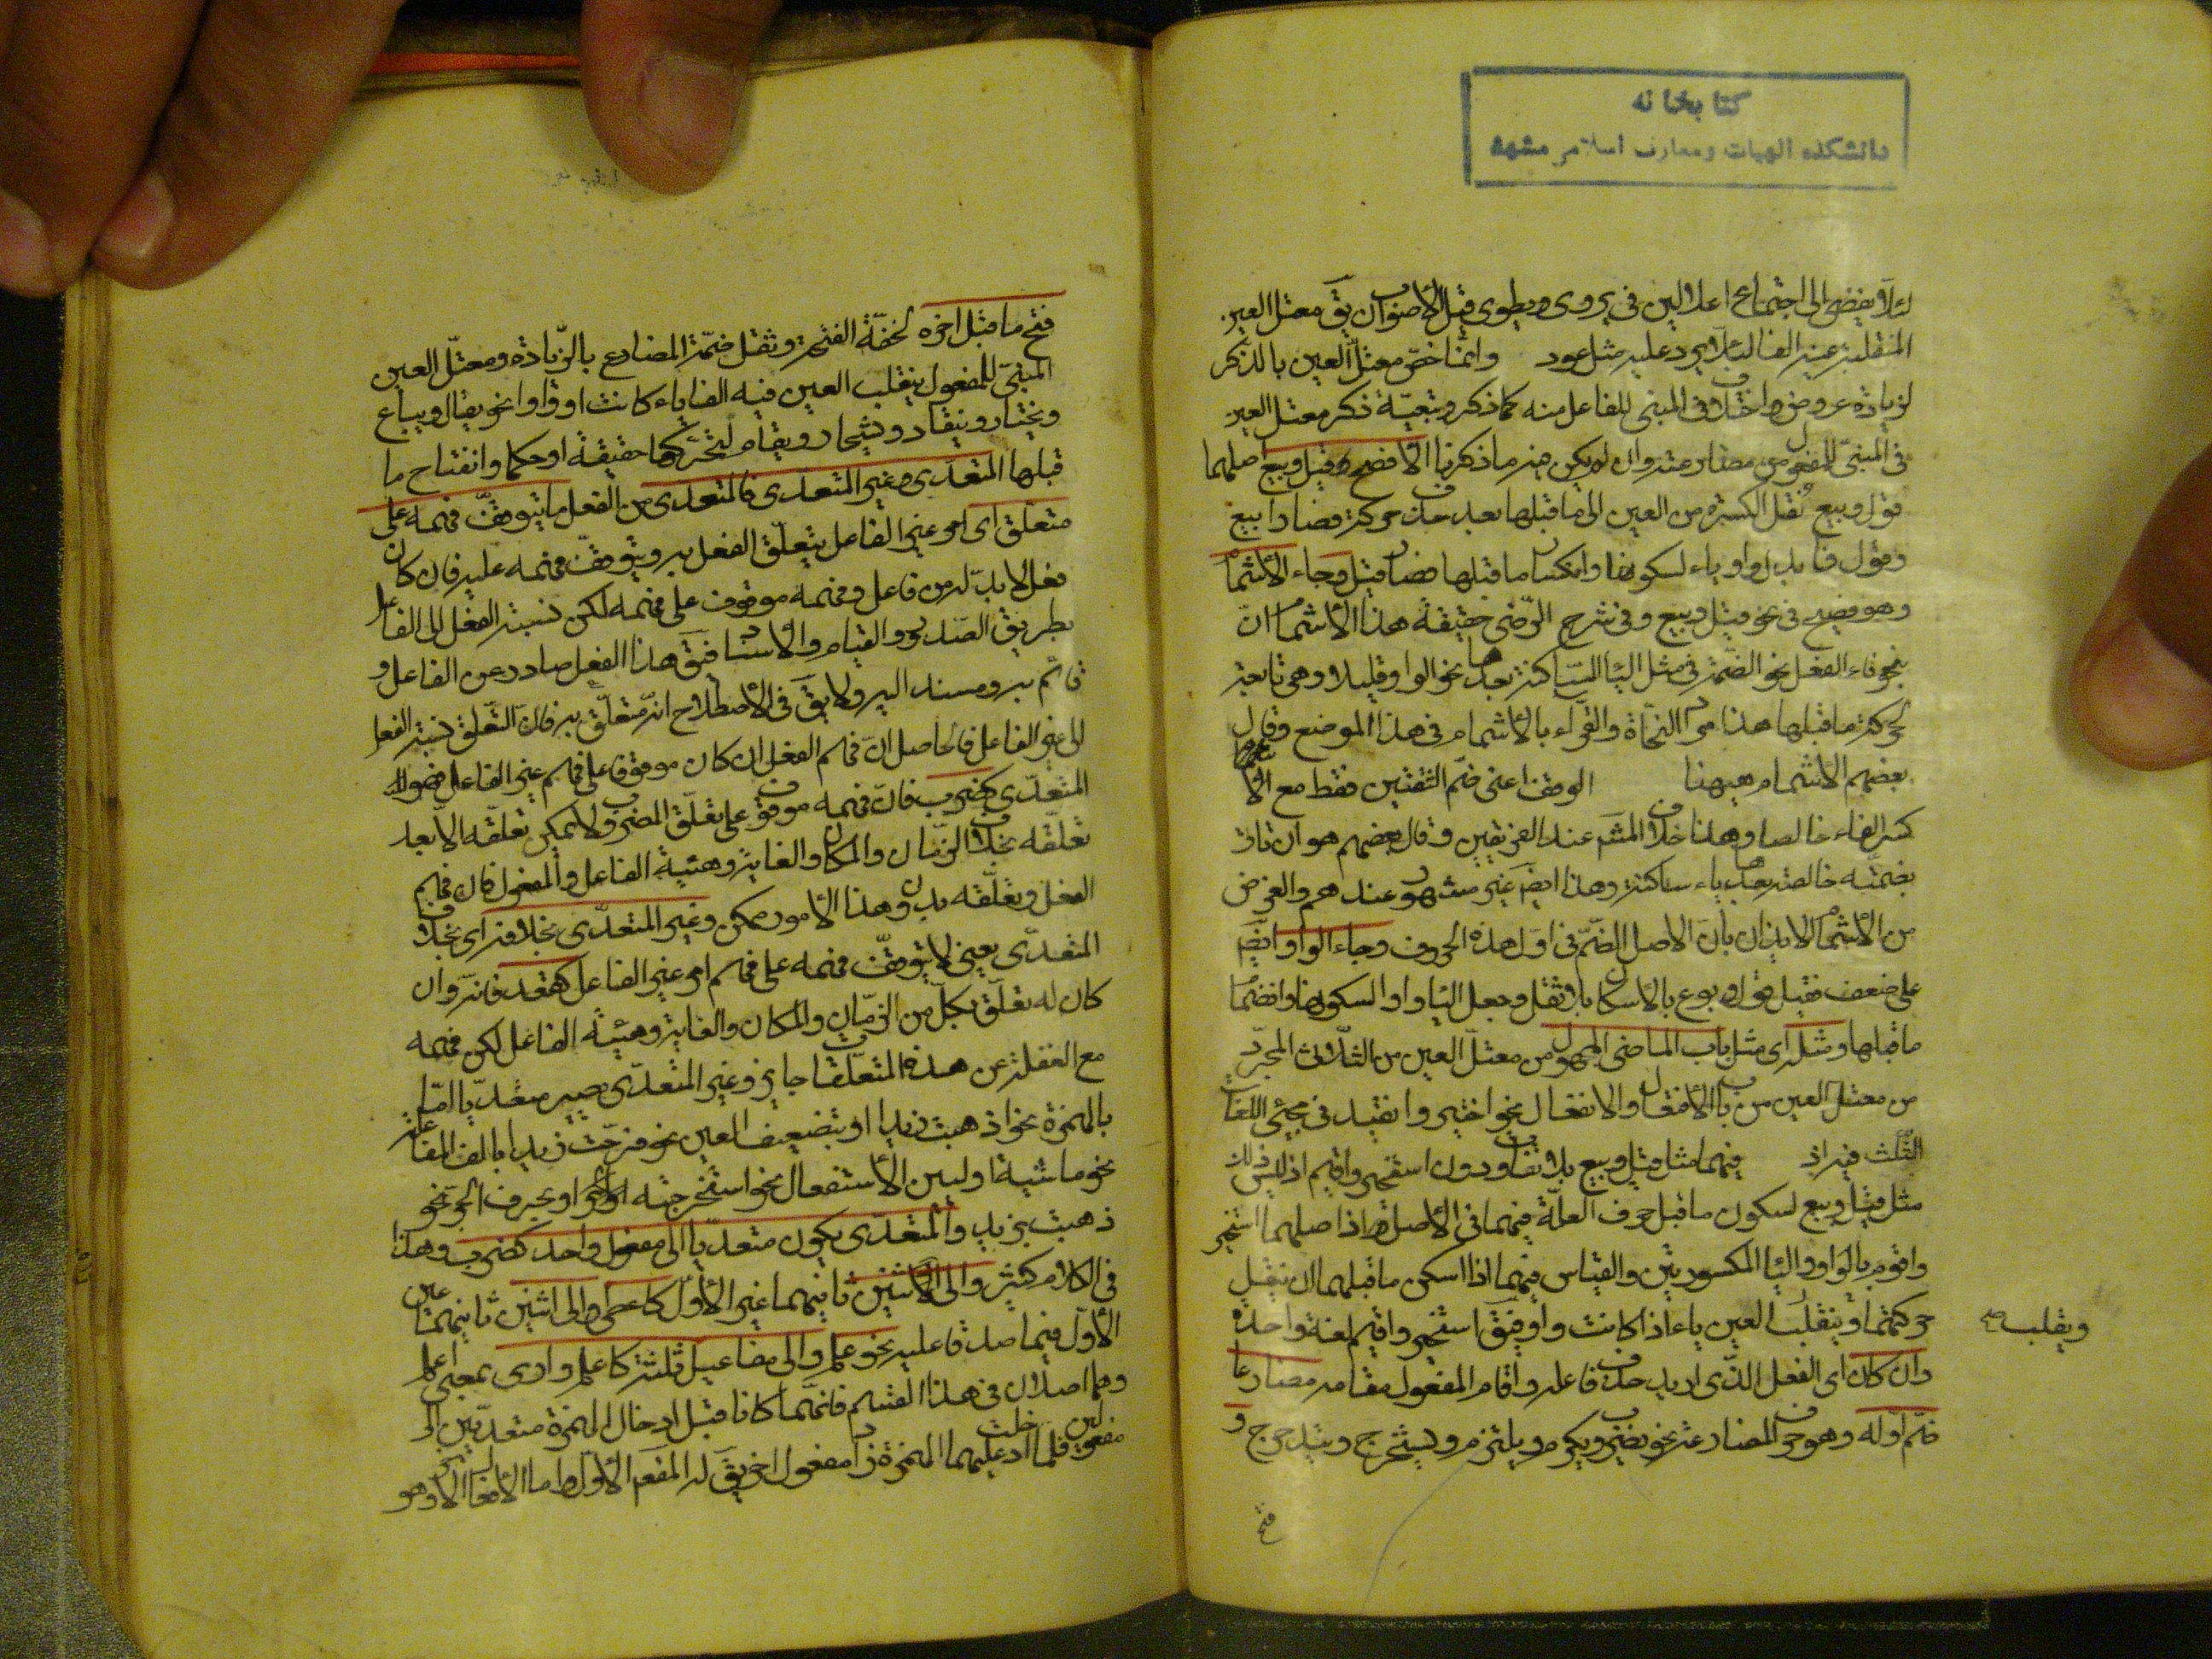 كتابخانه
دانشكده الهيات ومعارف اسلامی مشهد
لئلا يفضى الى اجتماع اعلالين فى يروى ويطوى قيل الاصوب ان يق معتل العين
المنقلبة عينه الفا لئلا يرد عليه مثل عود وانما خص معتل العين بالذكر
لزيادة غموض واختلاف فى المبنى للفاعل منه كما ذكر وبتعية ذكر معتل العين
فى المبنى للمفعول من مضارعته وان لم يكن فيه ما ذكرنا الافصح قيل وبيع اصلهما
قول وبيع نقل الكسرة من العين الى ما قبلها بعد حذف حركته فصارا بيع
وقول فابدل واو ياء لسكونها وانكسار ما قبلها فصار قيل وجاء الاشمام
وهو فصيح فى نحو قيل وبيع وفى شرح الرضى حقيقة هذا الاشمام ان
ينحو فاء الفعل نحو الضمة فى مثل الياء الساكنة بعدها نحو الواو قليلا وهى تابعة
لحركة ما قبلها هذا مراد النحاة والقراء بالاشمام فى هذا الموضع وقال
بعضهم الاشمام هيهنا الوقف اعنى ضم الشفتين فقط مع
كسر الفاء خالصا وهذا خلاف المشم عند الفريقين وقال بعضهم هو ان تاتى
بضمة خالصة بعدها ياء ساكنة وهذا ايضم غير مشهور عندهم والغرض
من الاشمام الايذان بان الاصل الضم فى اول هذه الحروف وجاء الواو ايضم
على ضعف فقيل قول وبوع بالاسكان بلا نقل وجعل الياء واوا لسكونها وانضمام
ما قبلها ومثله اى مثل باب الماضى المجهول من معتل العين من الثلاث المجرد
من معتل العين من باب الافتعال والانفعال نحو اختير وانقيد فى مجئ اللغات
الثلث فيه اذ فيهما مثل قيل وبيع بلا تفاوت دون استخير واقيم اذ ليس ذلك
مثل قيل وبيع لسكون ما قبل حرف العلة فيهما فى الاصل اذا اصلهما استخير
واقوم بالواو والياء المكسورتين والقياس فيهما اذا اسكن ما قبلهما ان ينقل
حركتهما وينقلب العين ياء اذا كانت واو فيق استخير واقيم لغة واحدة
ويقلب صح
وان كان اى الفعل الذى اريد حذف فاعله واقام المفعول مقامه مضارعا
ضم اوله وهو حرف المضارعة نحو يضرب ويكرم ويلتزم ويستخرج ويتدحرج و
فتح
فتح ما قبل اخره لخفة الفتحة وثقل ضمة المضارع بالزيادة ومعتل العين
المبنى للمفعول ينقلب العين فيه الفا ياء كانت او واوا نحو يقال ويباع
ويختار وينقاد ويستخار ويقام لتحركها حقيقة او حكما وانفتاح ما
قبلها المتعدى وغير المتعدى فالمتعدى من الفعل ما يتوقف فهمه على
متعلق اى امر غير الفاعل يتعلق الفعل به ويتوقف فهمه عليه فان كان
فعل لا بد له من فاعل وفهمه موقوف على فهمه لكن نسبة الفعل الى الفاعل
بطريق الصدور والقيام والاسناد فيق هذا الفعل صادر عن الفاعل و
قائم به ومسند اليه ولا يق فى الاصطلاح انه متعلق به فان التعلق نسبة الفعل
الى غير الفاعل فالحاصل ان فهم الفعل ان كان موقوفا على فهم غير الفاعل فهو
المتعدى كضرب فان فهمه موقوف على تعلق المضرب ولا يمكن تعلقه الا بعد
تعلقه بخلاف الزمان والمكان والغاية وهيئة الفاعل والمفعول فان فهم
الفعل وتعلقه بدون هذا الامور ممكن وغير المتعدى بخلافه اى بخلاف
المتعدى يعنى لا يتوقف فهمه على فهم امر غير الفاعل كقعد فانه وان
كان له تعلق بكل من الزمان والمكان والغاية وهيئة الفاعل لكن فهمه
مع الغفلة عن هذه المتعلقات جايز وغير المتعدى يصير متعديا اما
بالهمزة نحو اذهبت زيدا او بتضعيف العين نحو فرحت زيدا بالف المفاعلة
نحو ماشيته او لسين الاستفعال نحو استخرجته او بحرف الجر نحو
ذهبت بزيد والمتعدى يكون متعديا الى مفعول واحد كضرب وهذا
فى الكلام كثير والى الاثنين ثانيهما غير الاول كاعطى والى اثنين ثانيهما عين
الاول فيما صدقا عليه نحو علم والى مفاعيل ثلثة كاعلم وارى بمعنى اعلم
وهما اصلان فى هذا القسم فانهما كانا قبل ادخال الهمزة متعديين الى
مفعولين فلما ادخلت عليهما الهمزة زاد مفعول اخر يق له المفعم الاول واما الافعال الاخر وهو